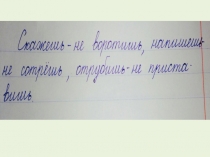 Скажешь - не воротишь, напишешь -
не сотрёшь, отрубишь - не приста-
вишь.